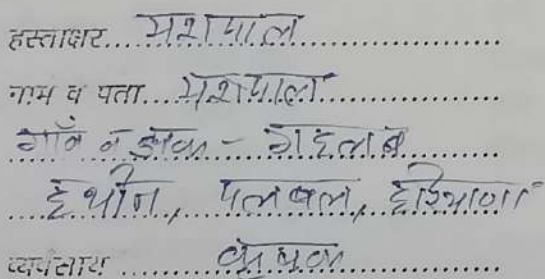 हस्ताक्षर.... यशपाल
नाम व पता.... यशपाल
गाँव व डाक - गहलब
हथीन, पलवल, हरियाणा
व्यवसाय .... कृषक